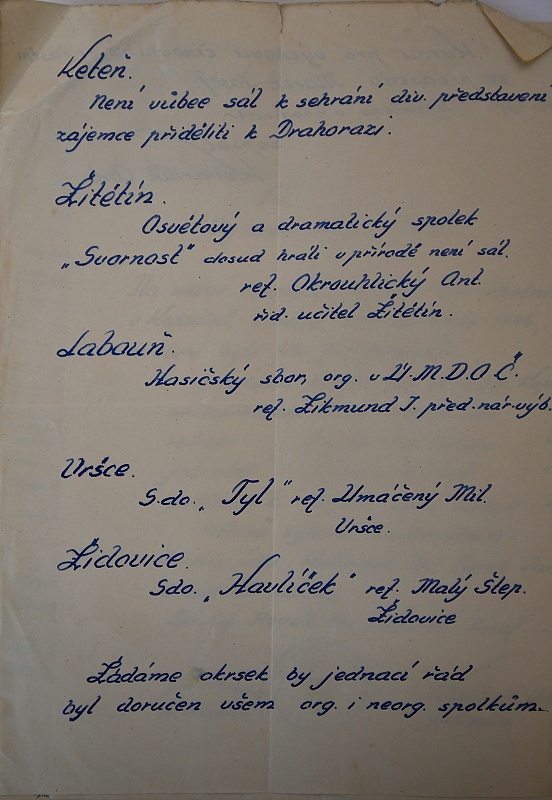 Keteň.
Není vůbec sál k sehrání div. představení
zájemce přiděliti k Drahorazi.
Žitětín.
Osvětový a dramatický spolek
„Svornost" dosud hráli v přírodě není sál.
ref. Okrouhlický Ant.
říd. učitel Žitětín.
Labouň.
Hasičský sbor, org. v Ú.M.D.O.Č.
ref. Zikmund J. před. nár. výb.
Vršce.
S.do. „Tyl" ref. Umáčený Mil.
Vršce.
Židovice.
Sdo. „Havlíček" ref. Malý Štep.
Židovice
Žádáme okrsek by jednací řád
byl doručen všem org. i neorg. spolkům.